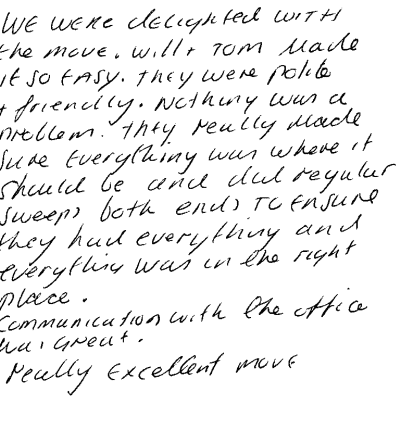 WE WERE delighted with
the move. Will + Tom made
it so easy. They were polite
+ friendly. Nothing was a
problem. They really made
sure everything was where it
should be and did regular
sweeps both ends to ensure
they had everything and
everything was in the right
place.
Communication with the office
was great.
Really Excellent move